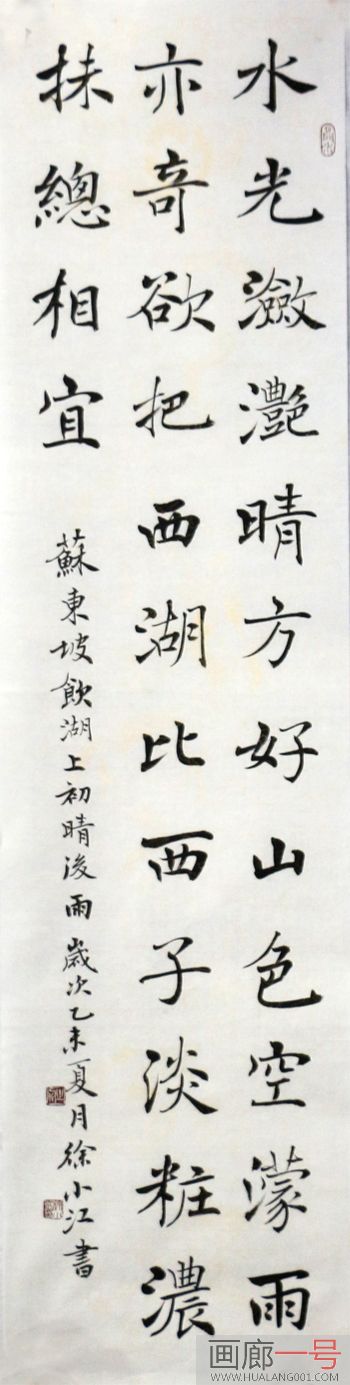 水光瀲灩晴方好山色空濛雨
亦奇欲把西湖比西子淡粧濃
抹總相宜
蘇東坡飲湖上初晴後雨歲次乙未夏月徐小江書
画廊一号
WWW.HUALANG001.COM